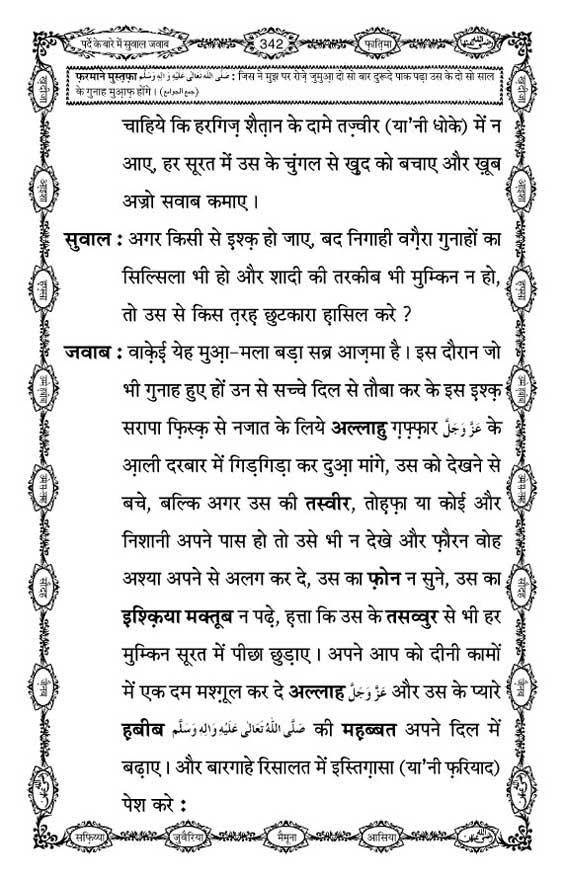 पर्दे के बारे में सुवाल जवाब
342
फ़ातिमा
फरमाने मुस्तफ़ा صَلَّى اللهُ تَعَالٰى عَلَيْهِ وَاٰلِهٖ وَسَلَّم : जिस ने मुझ पर रोज़े जुमुआ़ दो सो बार दुरूदे पाक पढ़ा उस के दो सो साल
के गुनाह मुआ़फ़ होंगे। (جمع الجوامع)
चाहिये कि हरगिज़ शैत़ान के दामे तज़्वीर (या'नी धोके) में न
आए, हर सूरत में उस के चुंगल से ख़ुद को बचाए और ख़ूब
अज्रो सवाब कमाए।
सुवाल : अगर किसी से इ़श्क़ हो जाए, बद निगाही वग़ैरा गुनाहों का
सिल्सिला भी हो और शादी की तरकीब भी मुम्किन न हो,
तो उस से किस त़रह छुटकारा ह़ासिल करे ?
जवाब : वाक़ेई येह मुआ़-मला बड़ा सब्र आज़मा है। इस दौरान जो
भी गुनाह हुए हों उन से सच्चे दिल से तौबा कर के इस इ़श्क़
सरापा फ़िस्क़ से नजात के लिये अल्लाहु ग़फ़्फ़ार عَزَّوَجَلَّ के
आ़ली दरबार में गिड़गिड़ा कर दुआ़ मांगे, उस को देखने से
बचे, बल्कि अगर उस की तस्वीर, तोह़फ़ा या कोई और
निशानी अपने पास हो तो उसे भी न देखे और फ़ौरन वोह
अश्या अपने से अलग कर दे, उस का फ़ोन न सुने, उस का
इ़श्क़िया मक्तूब न पढ़े, ह़त्ता कि उस के तसव्वुर से भी हर
मुम्किन सूरत में पीछा छुड़ाए। अपने आप को दीनी कामों
में एक दम मश्ग़ूल कर दे अल्लाह عَزَّوَجَلَّ और उस के प्यारे
ह़बीब صَلَّى اللهُ تَعَالٰى عَلَيْهِ وَاٰلِهٖ وَسَلَّم की मह़ब्बत अपने दिल में
बढ़ाए। और बारगाहे रिसालत में इस्तिग़ासा (या'नी फ़रियाद)
पेश करे :
सफ़िय्या
जुवैरिया
मैमूना
आसिया